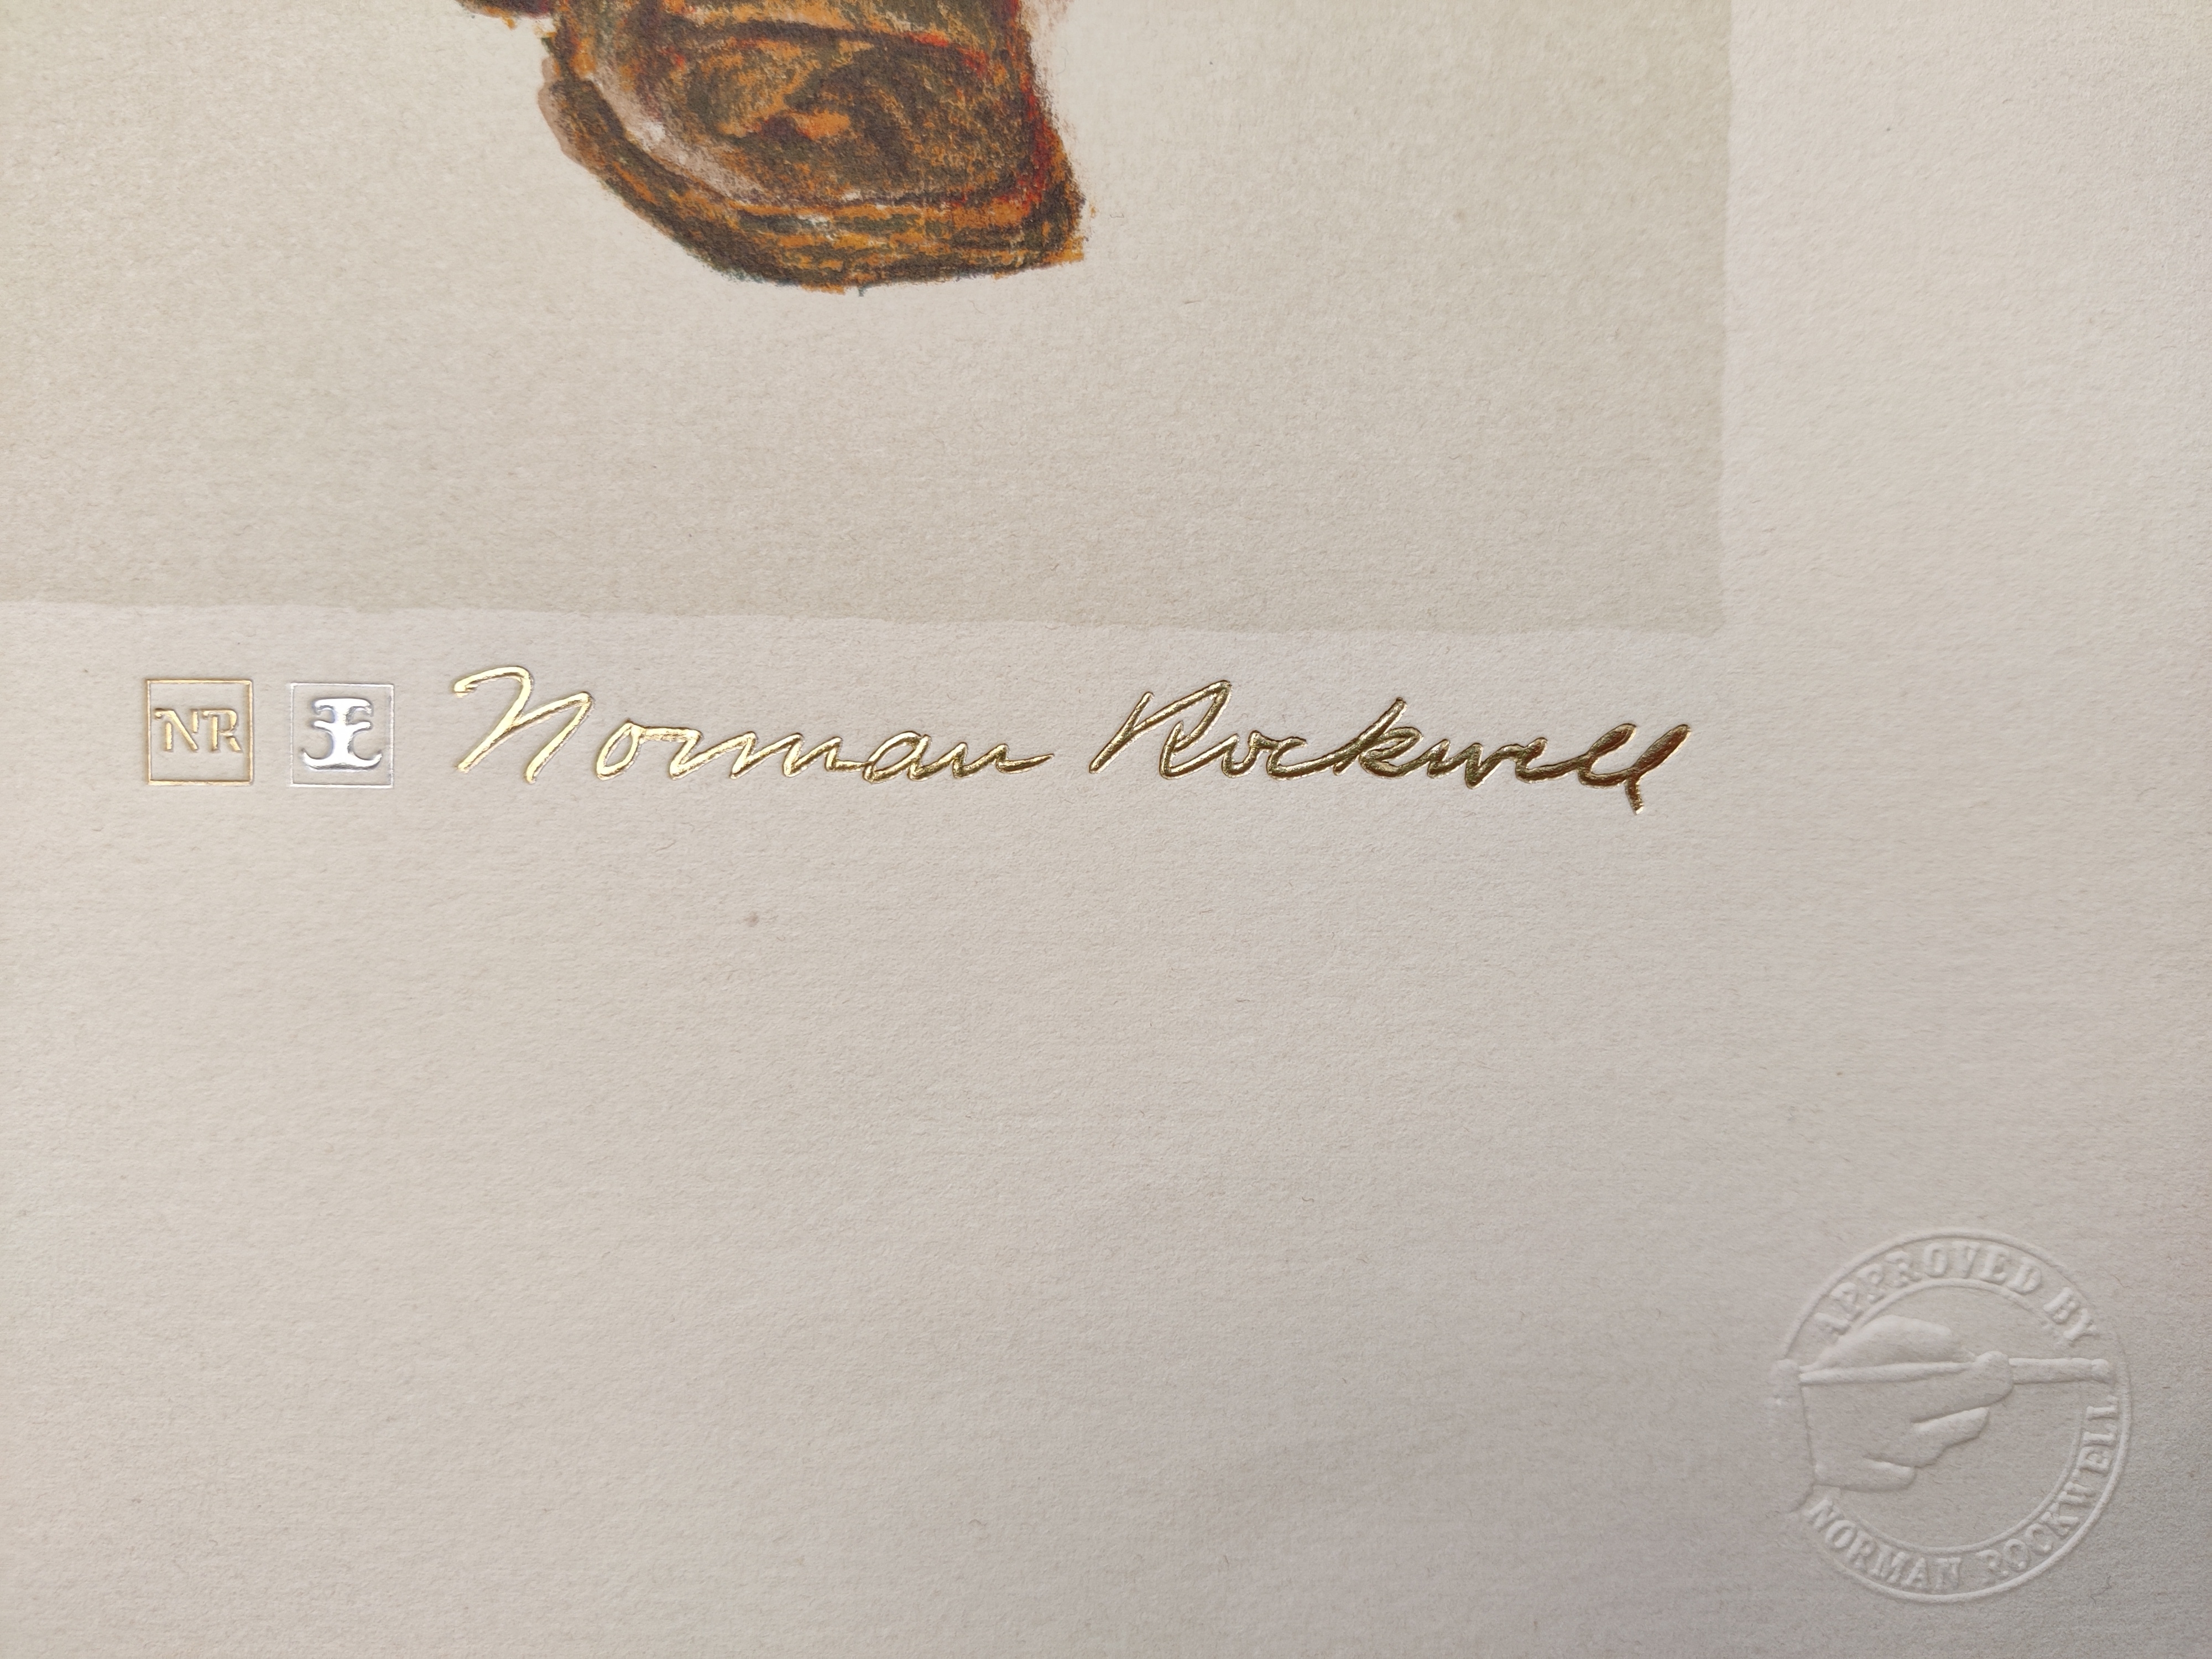 NR Norman Rockwell
APPROVED BY
NORMAN ROCKWELL